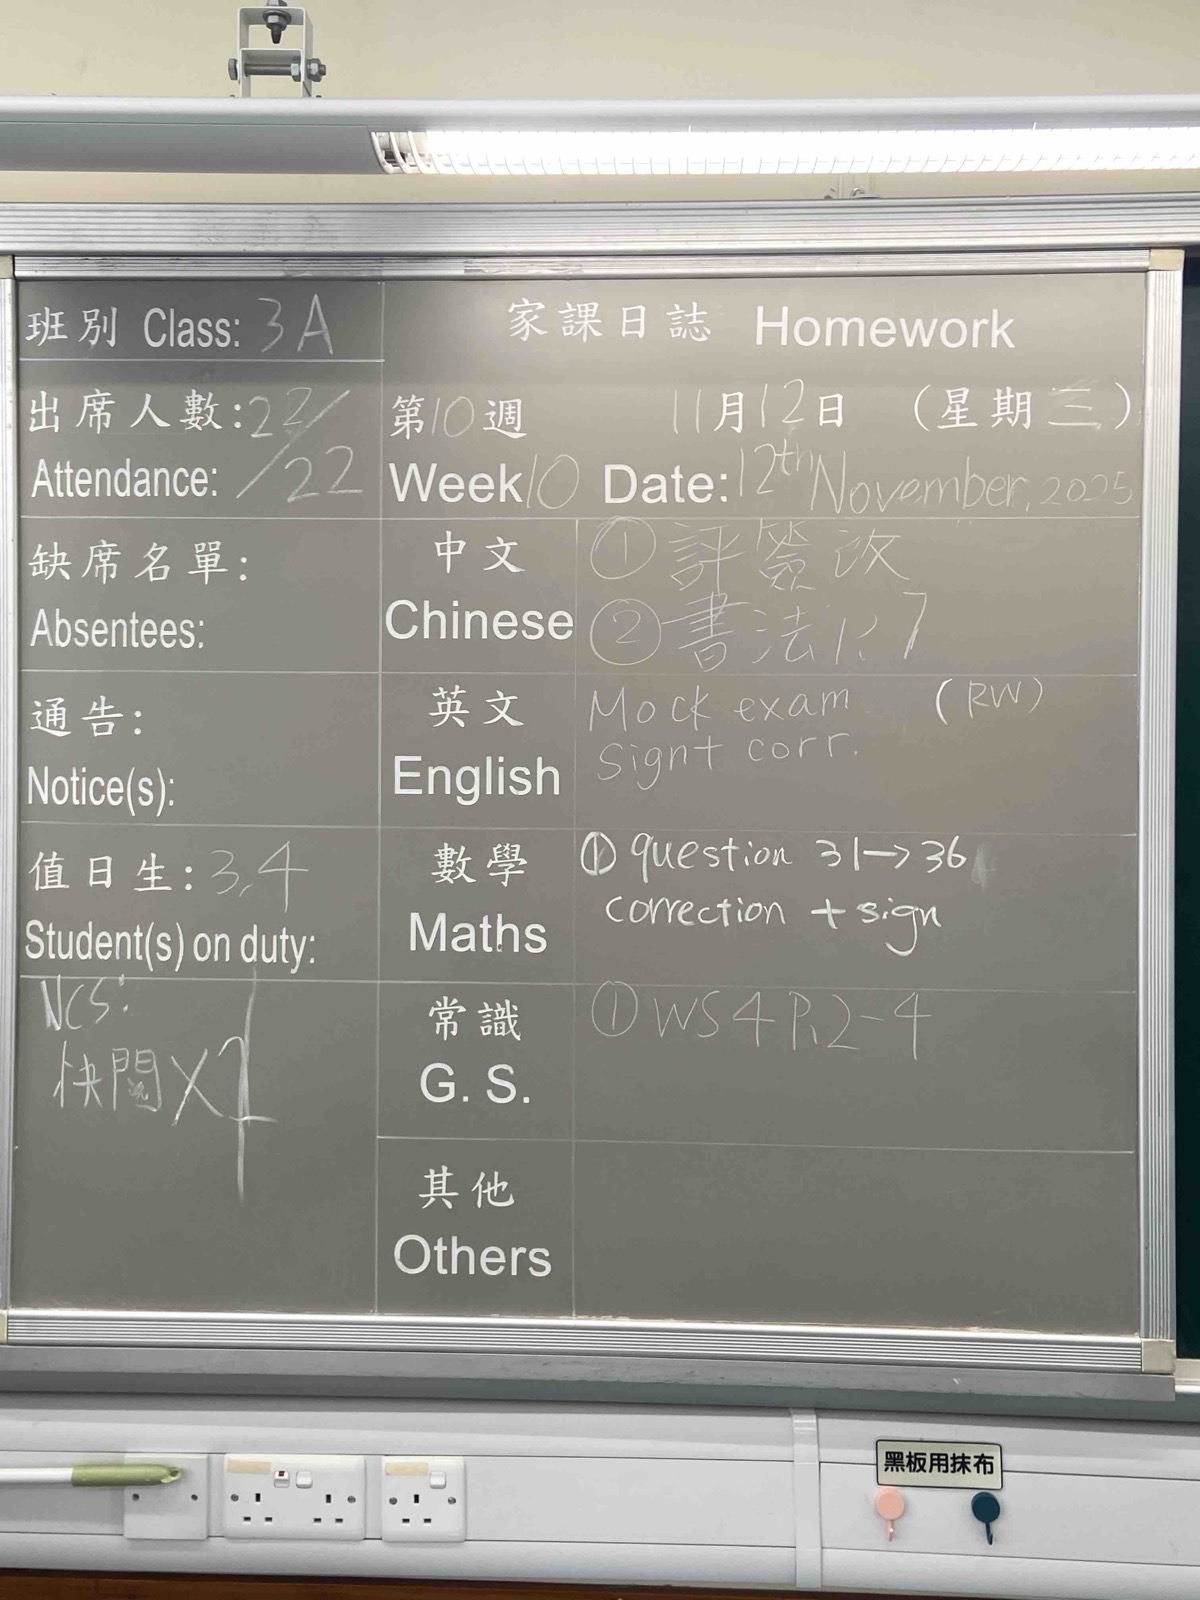 班別 Class: 3A
家課日誌 Homework
出席人數: 22/
Attendance: /22
第10週 11月12日 (星期三)
Week 10 Date: 12th November, 2025
缺席名單:
Absentees:
中文
Chinese
① 評簽改
② 書法 P.7
通告:
Notice(s):
英文
English
Mock exam (RW)
sign+ corr.
值日生: 3,4
Student(s) on duty:
數學
Maths
① question 31→36
correction + sign
NCS:
快閱 X
常識
G. S.
① WS 4 P.2-4
其他
Others
黑板用抹布